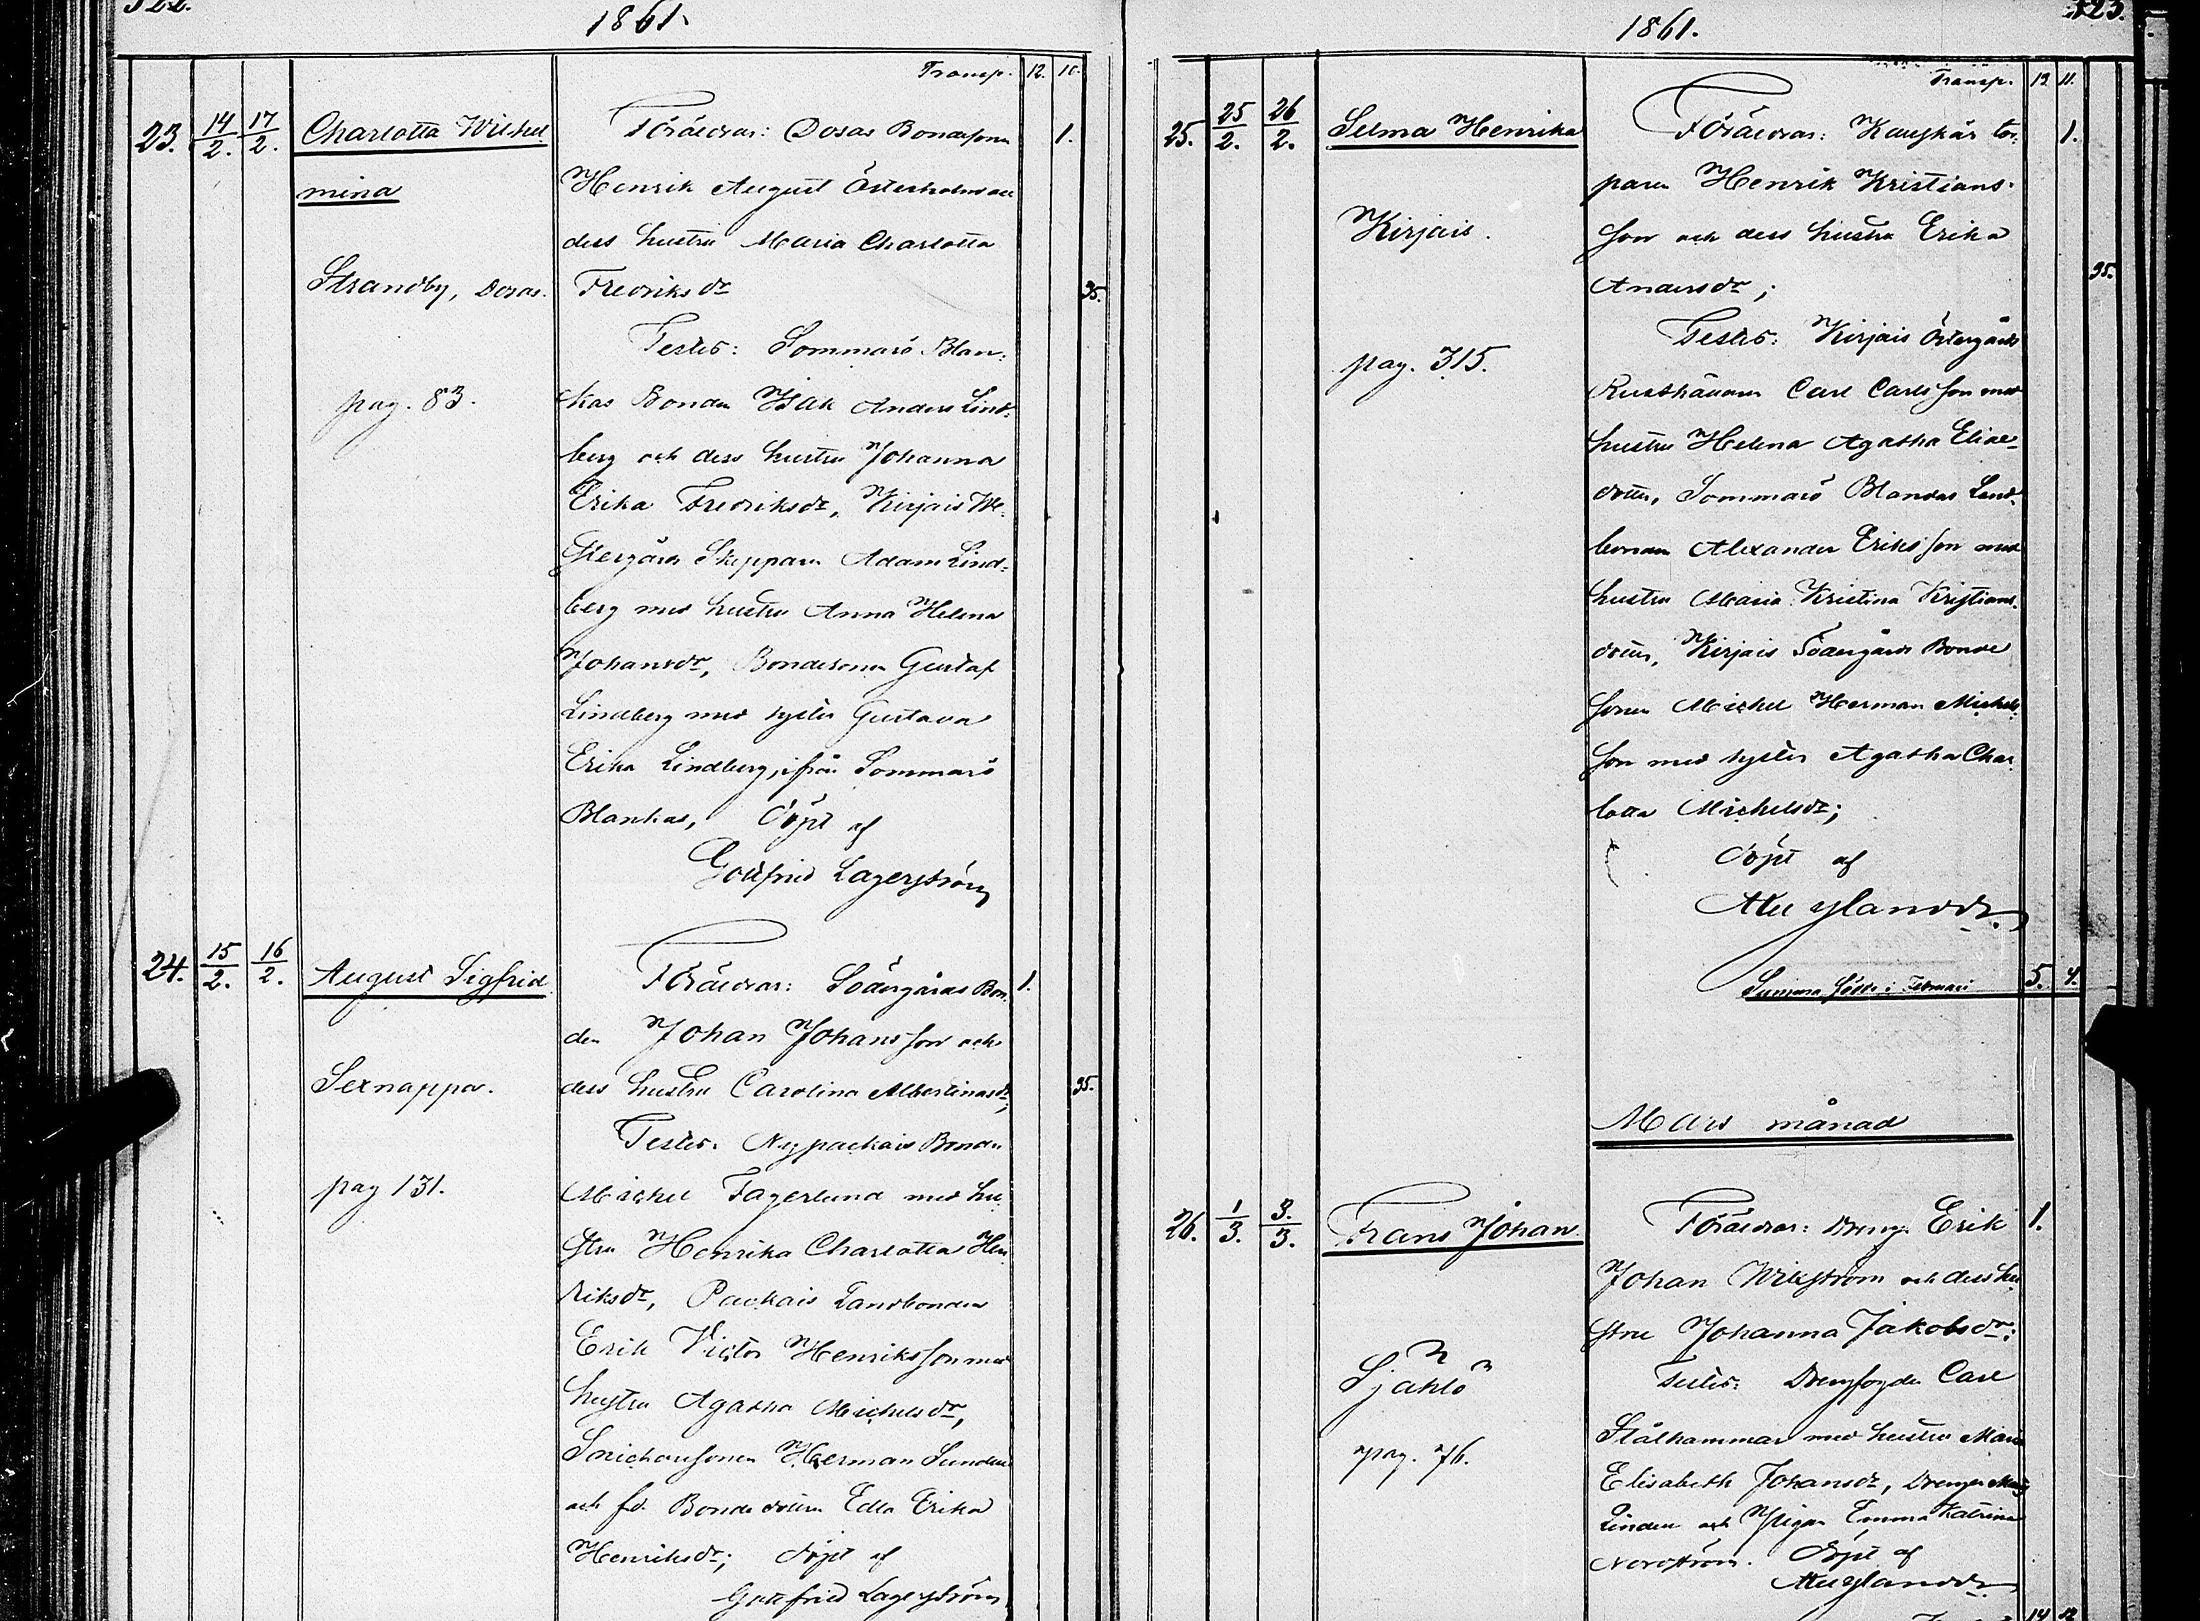 322.
1861.
Transp. 12. 10.
23. 14/2. 17/2. Charlotta Wilhel
mina
Strandby, Dosas.
pag. 83.
Föräldrar: Dosas Bondesonen 1.
Henrik August Österholm och
dess hustru Maria Charlotta
Fredriksdr 35.
Testes: Sommarö Blan-
kas Bonden Isak Anders Lind-
berg och dess hustru Johanna
Erika Fredriksdr, Kirjais We-
stergårds Skepparen Adam Lind-
berg med hustru Anna Helena
Johansdr, Bondesonen Gustaf
Lindberg med syster Gustava
Erika Lindberg, ifrån Sommarö
Blankas, Döpt af
Gottfrid Lagerström
24. 15/2. 16/2. August Sigfrid.
Sexnappa.
pag 131.
Föräldrar: Södergårds Bon- 1.
den Johan Johansson och
dess hustru Carolina Albertinasdr; 35.
Testes: Bonden
Michel Fagerlund med hu-
stru Henrika Charlotta Hen-
riksdr, Packais Landbonden
Erik Victor Henriksson med
hustru Agatha Michelsdr,
Herman
och fd. Bondedottern Edla Erika
Henriksdr; döpt af
Gottfrid Lagerström
323.
1861.
Transp. 12 11.
25. 25/2. 26/2. Selma Henrika
Kirjais.
pag. 315.
Föräldrar: tor- 1.
paren Henrik Kristians-
son och dess hustru Erika
Andersdr; 35.
Testes: Kirjais Östergårds
Rusthållaren Carl Carlsson med
hustru Helena Agatha Elias-
dotter, Sommarö Blankas Land-
bonden Alexander Eriksson med
hustru Maria Kristina Kristians-
dotter, Kirjais Södergårds Bonde
sonen Michel Herman Michels-
son med syster Agatha Char-
lotta Michelsdr;
Döpt af
Summa födde i Februari 5. 4.
Mars månad
26. 1/3. 3./3. Frans Johan.
Själö
pag. 76.
Föräldrar: Drengen Erik 1.
Johan Wikström och dess hu-
stru Johanna Jakobsdr;
Testes: Drengfogden Carl
Stålhammar med hustru Maria
Elisabeth Johansdr, Drengen
Linden och Pigan Emma Katrina
Nordström. Döpt af
14 12